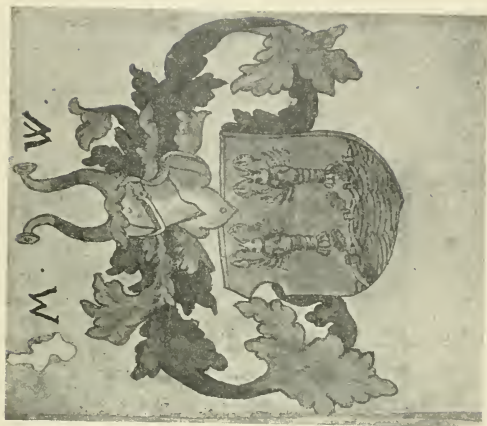 W · W ·